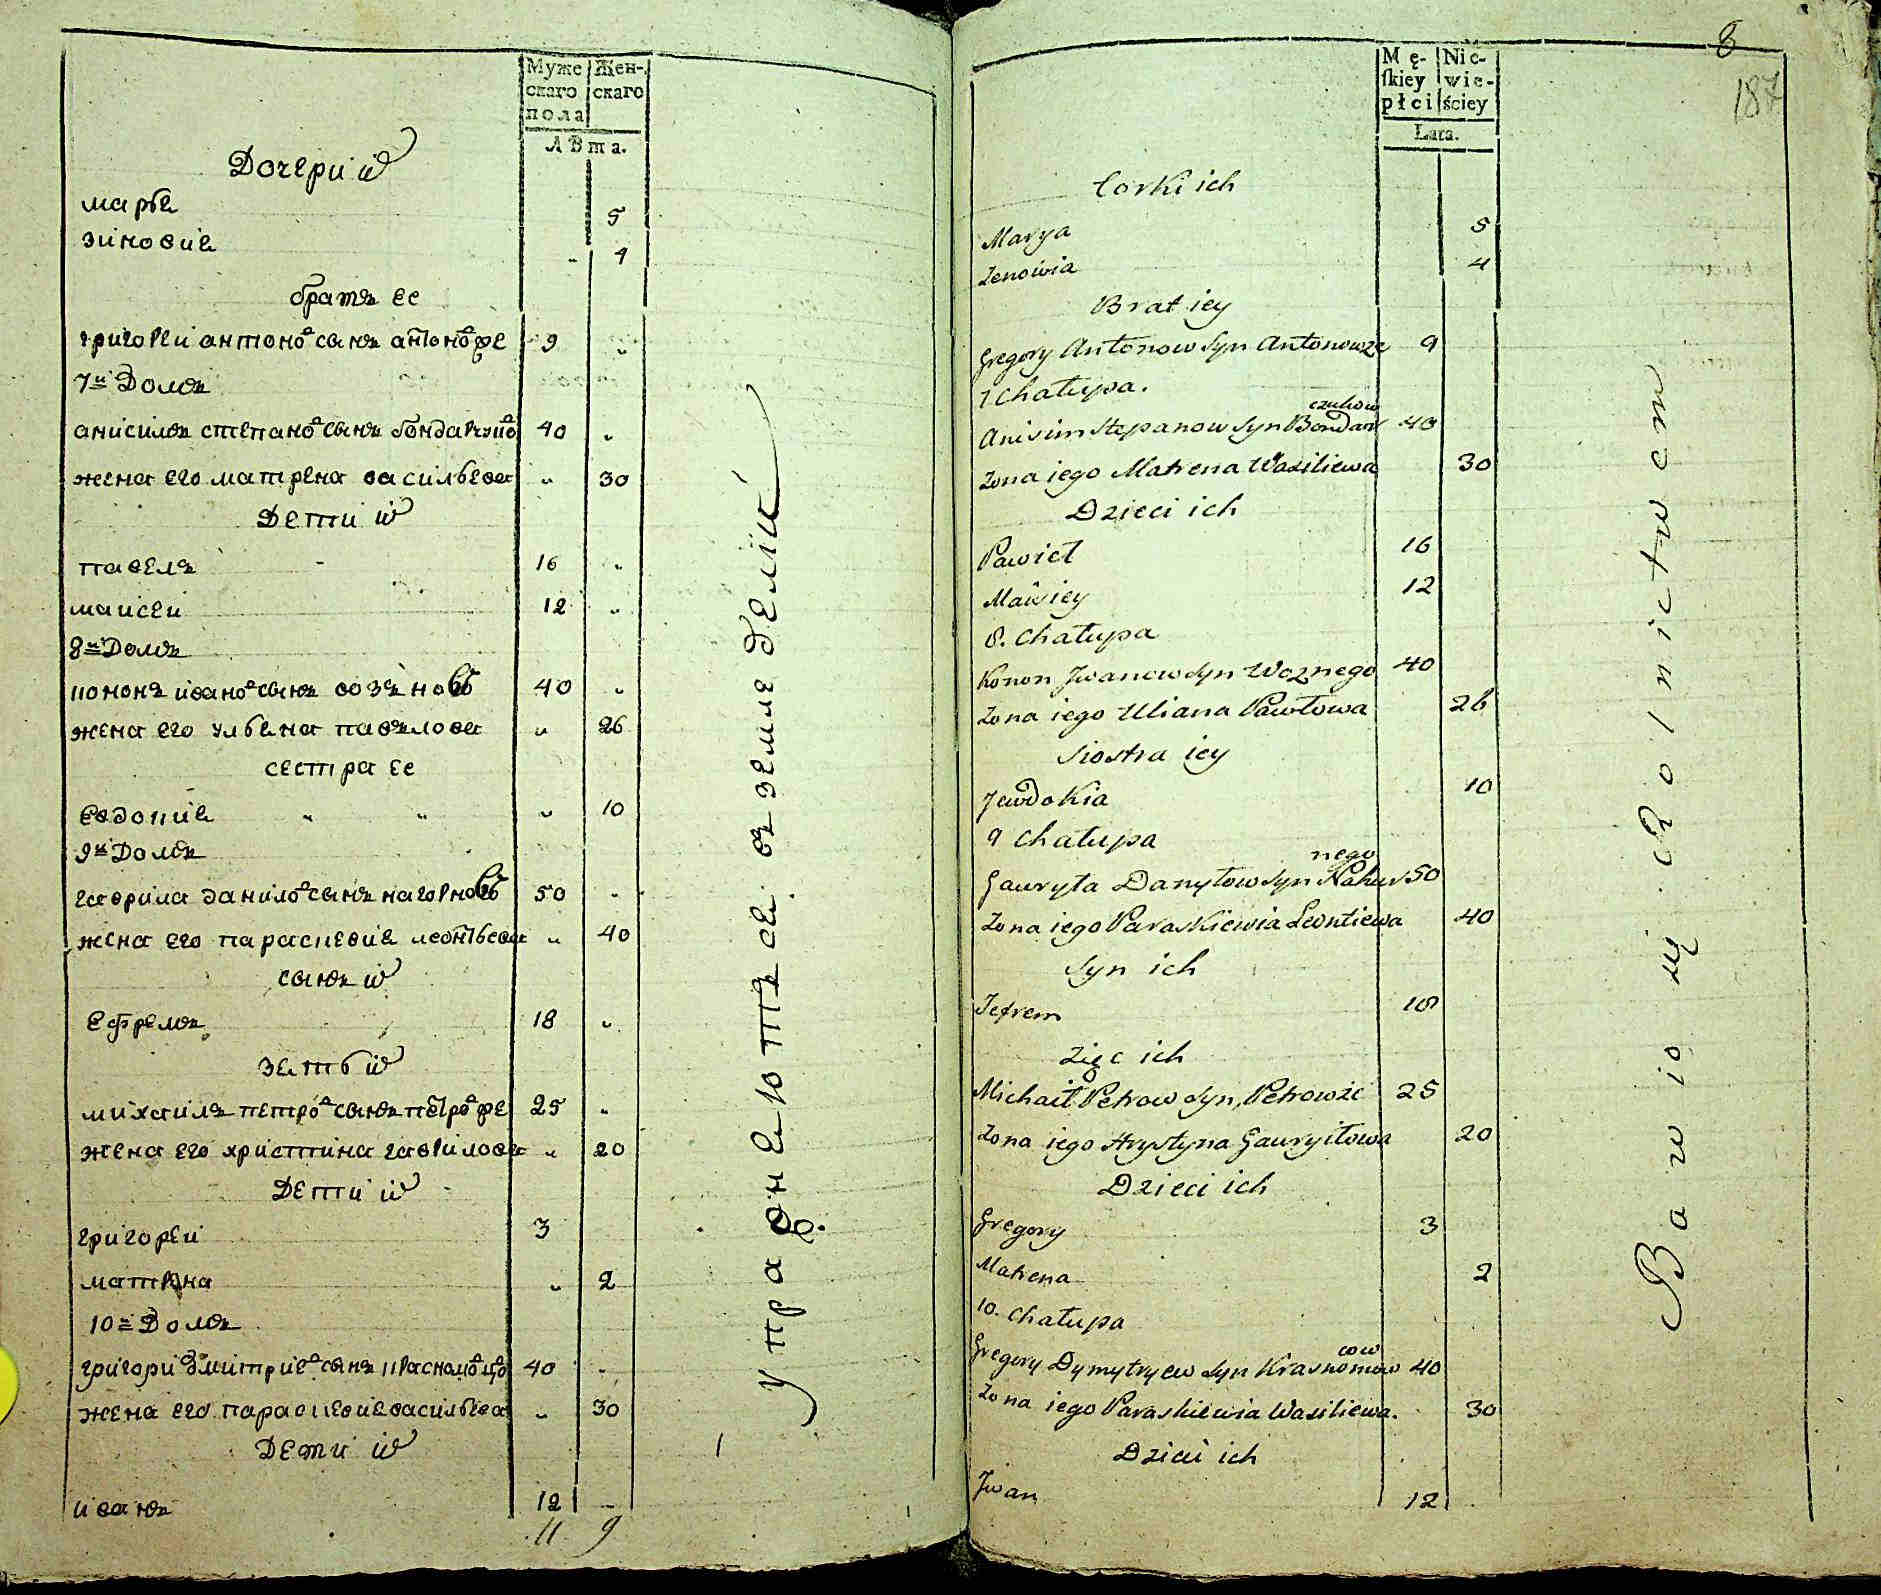 Муже Жен-
скаго скаго
пола
Лѣта.
Дочери иⷯ
марья 5
зиновия 4
братъ ее
григореи антоноⷡ сынъ 9
7й Домъ
анисимъ степаноⷡ сынъ 40
жена его матрена васильева 30
Дети иⷯ
павелъ 16
маисеи 12
8й Домъ
кононъ иваноⷡ сынъ 40
жена его ульяна павълова 26
сестра ее
евдокия 10
9й Домъ
гаврила данилоⷡ сынъ 50
жена его параскевия леоⷩтьева 40
сынъ иⷯ
ефремъ 18
зять иⷯ
михаилъ петроⷡ сынъ 25
жена его христина гаврилова 20
Дети иⷯ
григореи 3
матрена 2
10й Домъ
григори дмитриеⷡ сынъ 40
жена его параскевия васильева 30
Дети иⷯ
иванъ 12
11 9
упражняютъся въ земледелии
8
187
Mę- Nie-
ſkiey wie-
płci ściey
Lata.
Corki ich
Marya 5
Zenowia 4
Brat iey
Gregory Antonow Syn Antonowze 9
7 Chałupa.
czukow
Anisim Stepanow Syn Bondar 40
Zona iego Matrena Wasiliewa 30
Dzieci ich
Pawieł 16
Maisiey 12
8. Chałupa
Konon Jwanow Syn Woznego 40
Zona iego Uliana Pawłowa 26
Siostra iey
Jewdokia 10
9 Chałupa
nego
Gauryła Danyłow Syn Nahur 50
Zona iego Paraskiewia Leontiewa 40
Syn ich
Jefrem 18
Zięc ich
Michaił Petrow Syn Petrowze 25
Zona iego Hrystyna Gauryiłowa 20
Dzieci ich
Gregory 3
Matrena 2
10. Chałupa
cow
Gregory Dymytryew Syn Krasnomow 40
Zona iego Paraskiewia Wasiliewa. 30
Dzieci ich
Jwan 12
Bawio się Rolnictwem